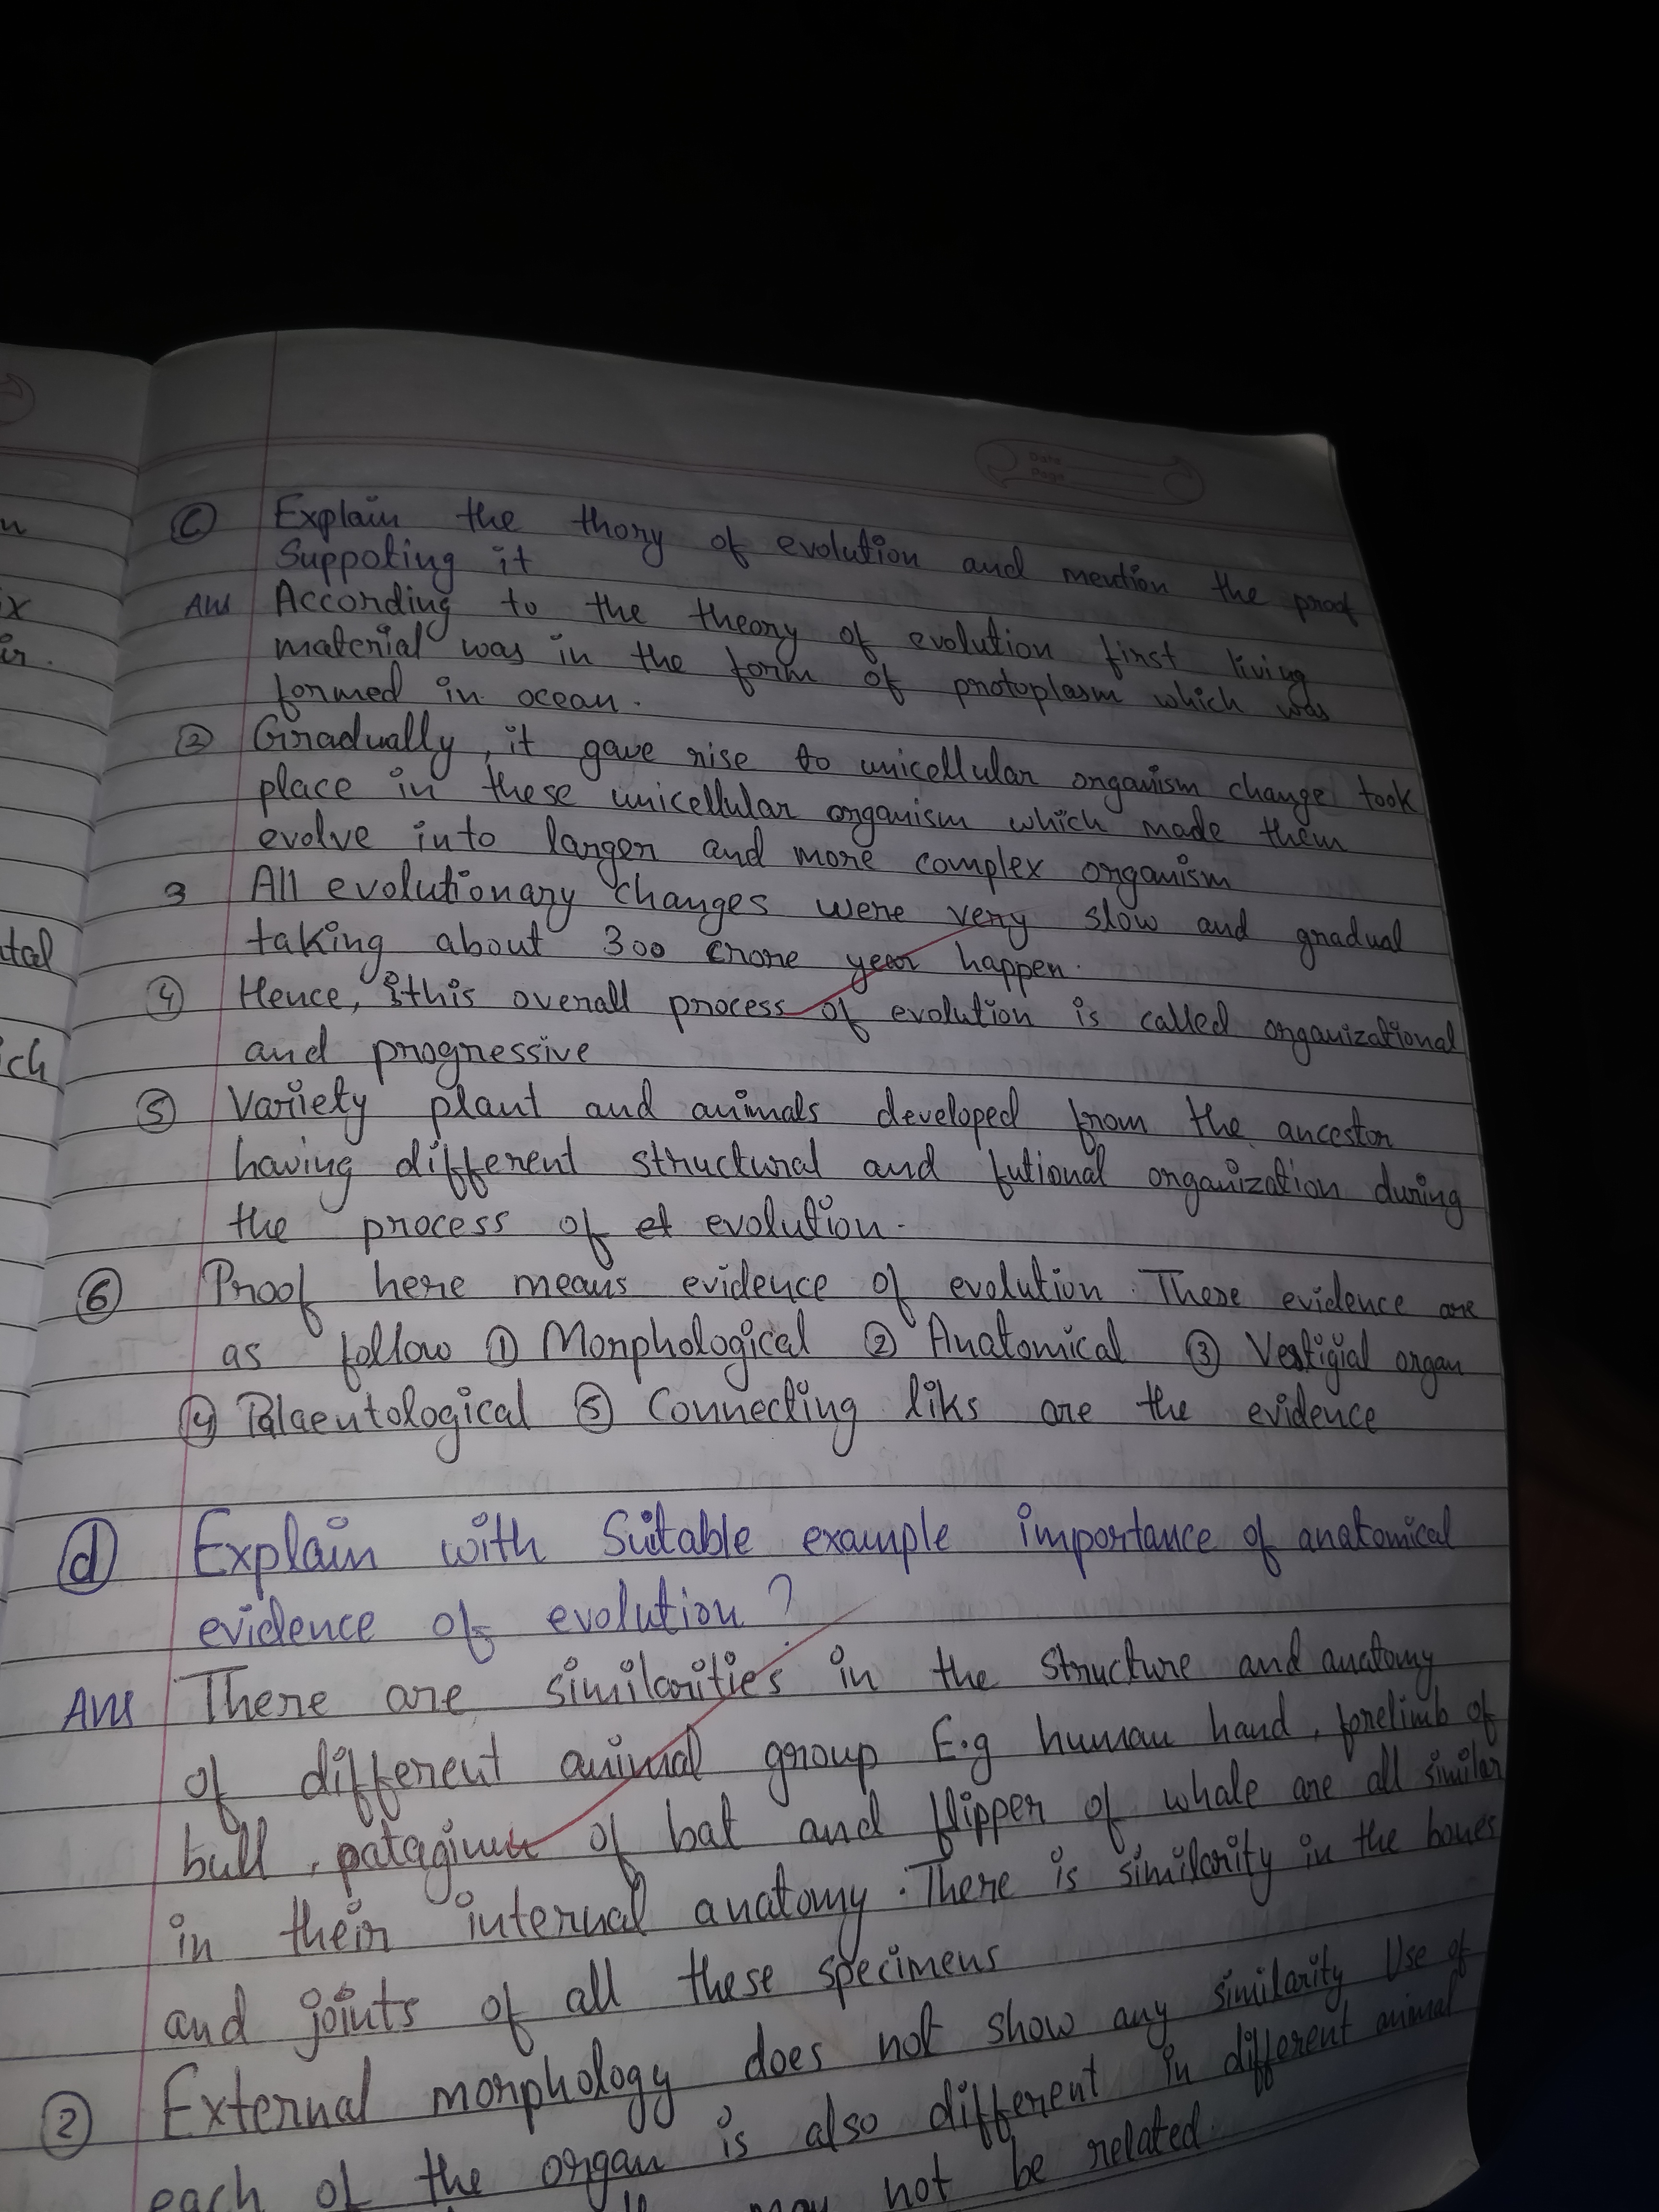 Date
Page
C Explain the thory of evolution and mention the proof
Suppoting it
Ans According to the theory of evolution first living
material was in the form of protoplasm which was
formed in ocean.
2 Gradually, it gave rise to unicellular organism change took
place in these unicellular organism which made them
evolve into larger and more complex organism
3 All evolutionary changes were very slow and gradual
taking about 300 crore year happen.
4 Hence, this overall process of evolution is called organizational
and progressive
5 Variety plant and animals developed from the ancestor
having different structural and futional organization during
the process of et evolution.
6 Proof here means evidence of evolution. These evidence are
as follow 1 Morphological 2 Anatomical 3 Vestigial organ
4 Palaentological 5 Connecting liks are the evidence
d Explain with Suitable example importance of anatomical
evidence of evolution?
Ans There are similarities in the structure and anatomy
of different animal group E.g human hand, forelimb of
bull, patagium of bat and flipper of whale are all similar
in their internal anatomy. There is similarity in the bones
and joints of all these specimens
2 External morphology does not show any similarity Use of
each of the organ is also different in different animal
may not be related
n
ix
ir.
tal
ich